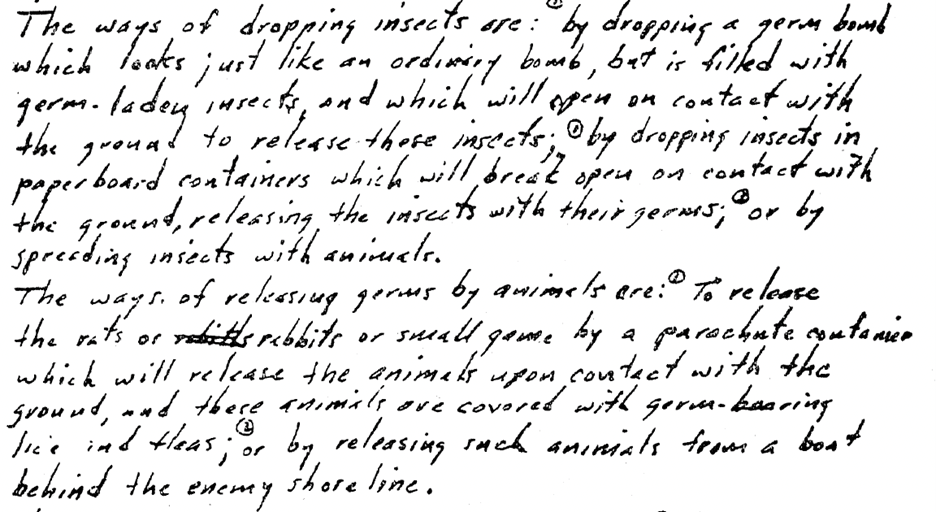 The ways of dropping insects are: ① by dropping a germ bomb
which looks just like an ordinary bomb, but is filled with
germ-laden insects, and which will open on contact with
the ground to release these insects; ② by dropping insects in
paperboard containers which will break open on contact with
the ground, releasing the insects with their germs; ③ or by
spreading insects with animals.
The ways of releasing germs by animals are: ① To release
the rats or rabbits or small game by a parachute container
which will release the animals upon contact with the
ground, and these animals are covered with germ-bearing
lice and fleas; ② or by releasing such animals from a boat
behind the enemy shore line.